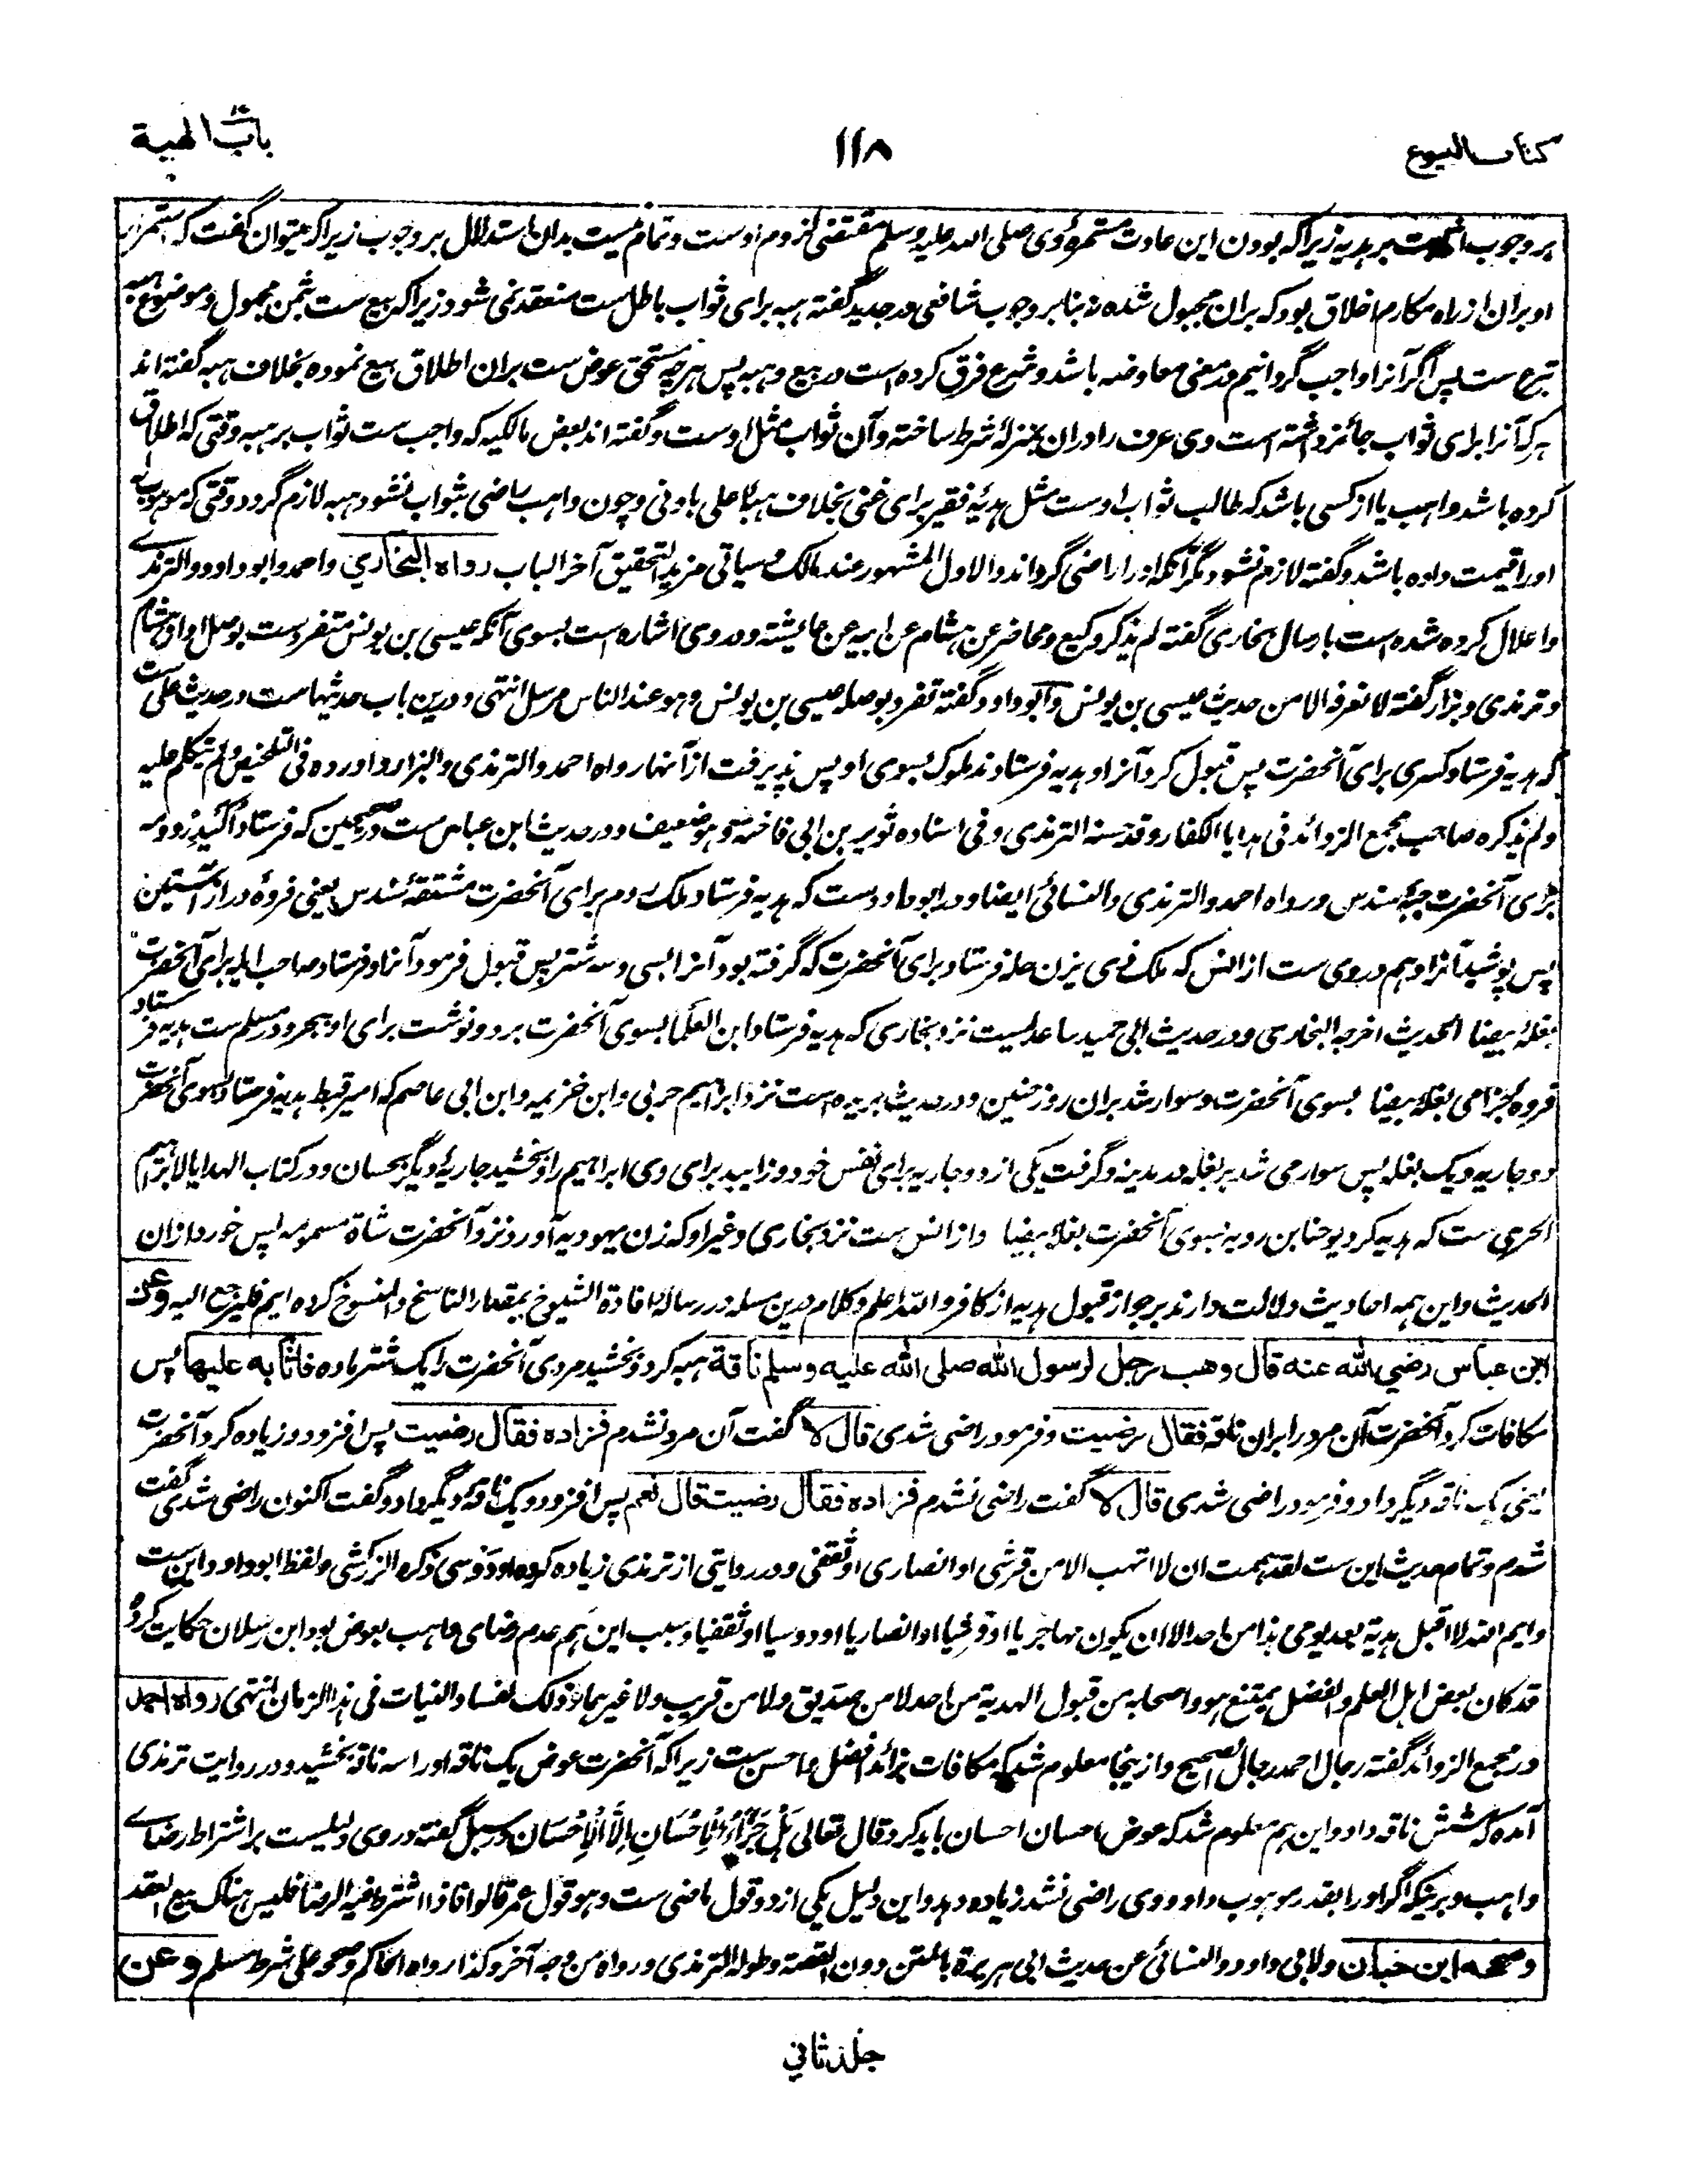 کتاب البیوع
۱۱۸
باب الهبة
بر وجوب اثابت بر هدیه زیرا که بودن این عادت مستمرۀ وی صلی الله علیه وسلم مقتضی لزوم اوست و تمام نیست بدان استدلال بر وجوب زیرا که میتوان گفت که استمرار
او بران از راه مکارم اخلاق بود که بران مجبول شده نه بنا بر وجوب شافعی در جدید گفته هبه برای ثواب باطل ست منعقد نمی شود زیرا که بیع ست بثمن مجهول و موضوع هبه
تبرع ست پس اگر آنرا واجب گردانیم در معنی معاوضه باشد و شرع فرق کرده است در بیع و هبه پس هر چه مستحق عوض ست بران اطلاق بیع نموده بخلاف هبه گفته اند
هر که آنرا برای ثواب جائز داشته است وی عرف را دران بمنزلۀ شرط ساخته و آن ثواب مثل اوست و گفته اند بعض مالکیه که واجب ست ثواب بر هبه وقتی که اطلاق
کرده باشد واهب یا از کسی باشد که طالب ثواب اوست مثل هدیۀ فقیر برای غنی بخلاف هبۀ اعلی بادنی و چون واهب راضی بثواب نشود هبه لازم گردد وقتی که موهوب له
او را قیمت داده باشد و گفته لازم نشود مگر آنکه او را راضی گرداند والاول المشهور عند مالک و سیاتی مزید التحقیق آخر الباب رواه البخاري واحمد وابو داود والترمذے
واعلال کرده شده است بارسال بخاری گفته لم یذکر وکیع ومحاضر عن هشام عن ابیه عن عایشة و در وی اشاره است بسوی آنکه عیسی بن یونس متفرد ست بوصل او از هشام
و ترمذی و بزار گفته لا نعرفه الا من حدیث عیسی بن یونس و ابو داود گفته تفرد بوصله عیسی بن یونس وهو عند الناس مرسل انتهی و درین باب حدیثهاست در حدیث علی ست
که هدیه فرستاد کسری برای آنحضرت پس قبول کرد آنرا و هدیه فرستادند ملوک بسوی او پس پذیرفت از آنها رواه احمد والترمذی والبزار و اورده فی التلخیص ولم یتکلم علیه
ولم یذکره صاحب مجمع الزوائد فی هدایا الکفار وقد حسنه الترمذی وفی اسناده ثویر بن ابی فاخته وهو ضعیف و در حدیث ابن عباس ست در صحیحین که فرستاد اکیدر دومه
برای آنحضرت جبۀ سندس ورواه احمد والترمذی والنسائی ایضا و در ابو داود ست که هدیه فرستاد ملک روم برای آنحضرت مستقۀ سندس یعنی فروۀ دراز آستین
پس پوشید آنرا و هم در وی ست از انس که ملک ذی یزن حله فرستاد برای آنحضرت که گرفته بود آنرا بسی و سه شتر پس قبول فرمود آنرا و فرستاد صاحب ایله برای آنحضرت
بغلۀ بیضا الحدیث اخرجه البخاری و در حدیث ابی حمید ساعدی ست نزد بخاری که هدیه فرستاد ابن العلما بسوی آنحضرت برد و نوشت برای او ببحر و در مسلم ست هدیه فرستاد
فروه جذامی بغلۀ بیضا بسوی آنحضرت و سوار شد بران روز حنین و در حدیث بریده است نزد ابراهیم حربی و ابن خزیمه و ابن ابی عاصم که امیر قبط هدیه فرستاد بسوی آنحضرت
دو جاریه و یک بغله پس سوار می شد بر بغله در مدینه و گرفت یکی از دو جاریه برای نفس خود و زایید برای وی ابراهیم را و بخشید جاریۀ دیگر بحسان و در کتاب الهدایا لابراهیم
الحربی ست که هدیه کرد یوحنا بن روبه بسوی آنحضرت بغلۀ بیضا و از انس ست نزد بخاری وغیر او که زن یهودیه آورد نزد آنحضرت شاة مسمومه پس خورد ازان
الحدیث و این همه احادیث دلالت دارند بر جواز قبول هدیه از کافر والله اعلم و کلام درین مسله در رسالۀ افادة الشیوخ بمقدار الناسخ والمنسوخ کرده ایم فلیرجع الیه وعن
ابن عباس رضي الله عنه قال وهب رجل لرسول الله صلى الله علیه وسلم ناقة هبه کرد و بخشید مردی آنحضرت را یک شتر ماده فاثابه علیها پس
مکافات کرد آنحضرت آن مرد را بران ناقه فقال رضیت و فرمود راضی شدی قال لا گفت آن مرد نشدم فزاده فقال رضیت پس افزود و زیاده کرد آنحضرت
یعنی یک ناقه دیگر داد و فرمود راضی شدی قال لا گفت راضی نشدم فزاده فقال رضیت قال نعم پس افزود و یک ناقۀ دیگر داد و گفت اکنون راضی شدی گفت
شدم و تمام حدیث این ست لقد هممت ان لا اتهب الا من قرشی او انصاری او ثقفی و در روایتی از ترمذی زیاده کرده او دوسی ذکره الزرکشی و لفظ ابو داود این ست
وایم الله لا اقبل هدیة بعد یومی هذا من احد الا ان یکون مهاجریا او قرشیا او انصاریا او دوسیا او ثقفیا و سبب این هم عدم رضای واهب بعوض بود ابن رسلان حکایت کرده
قد کان بعض اهل العلم والفضل یمتنع هو واصحابه من قبول الهدیة من احد لا من صدیق ولا من قریب ولا غیرهما وذلک لفساد النیات فی هذا الزمان انتهی رواه احمد
و در مجمع الزوائد گفته رجال احمد رجال الصحیح و ازینجا معلوم شد که مکافات بزائد افضل و احسن ست زیرا که آنحضرت عوض یک ناقه او را سه ناقه بخشید و در روایت ترمذی
آمده که شش ناقه داد و این هم معلوم شد که عوض احسان احسان باید کرد قال تعالی هَلْ جَزَاءُ الْإِحْسَانِ إِلَّا الْإِحْسَان و در سبل گفته در وی دلیلیست بر اشتراط رضاے
واهب و برینکه اگر او را بقدر موهوب داد و وی راضی نشد زیاده دهد و این دلیل یکی از دو قول ماضی ست وهو قول عمر قالوا فاذا اشترط فیه الرضا فلیس هناک بیع انعقد
وصححه ابن حبان ولابی داود والنسائی عن حدیث ابی هریرة بالمتن دون القصة وطوله الترمذی ورواه من وجه آخر وکذا رواه الحاکم وصححه علی شرط مسلم وعن
جلد ثاني